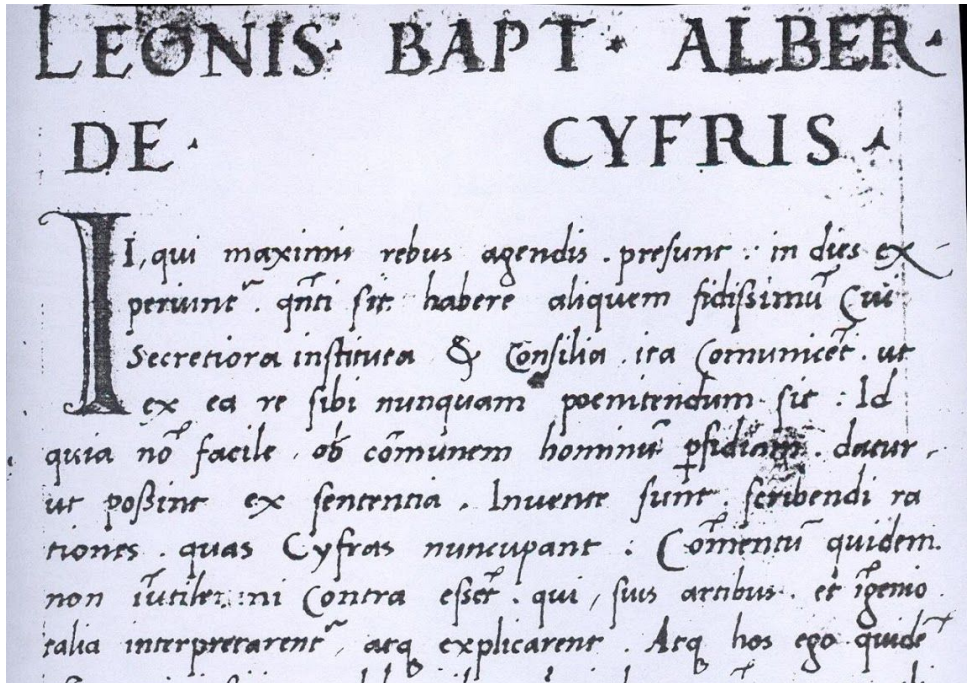 LEONIS· BAPT· ALBER·
DE· CYFRIS·
II, qui maximis rebus agendis . presunt : in dies ex
periunt᷑ . qn̄ti sit habere aliquem fidissimū Cui
Secretiora instituta & Consilia . ita Comunicēt . ut
ex ea re sibi nunquam poenitendum sit : Id
quia nō facile . ob cōmunem hominū ꝑfidiam . datur ,
ut possint ex sententia . Invente sunt . scribendi ra
tiones . quas Cyfras nuncupant : Cōmentū quidem
non iūtile: ni Contra essēt . qui , suis artibus . et īgenio
talia interpretarent᷑ atq explicarent . Atq hos ego quidē